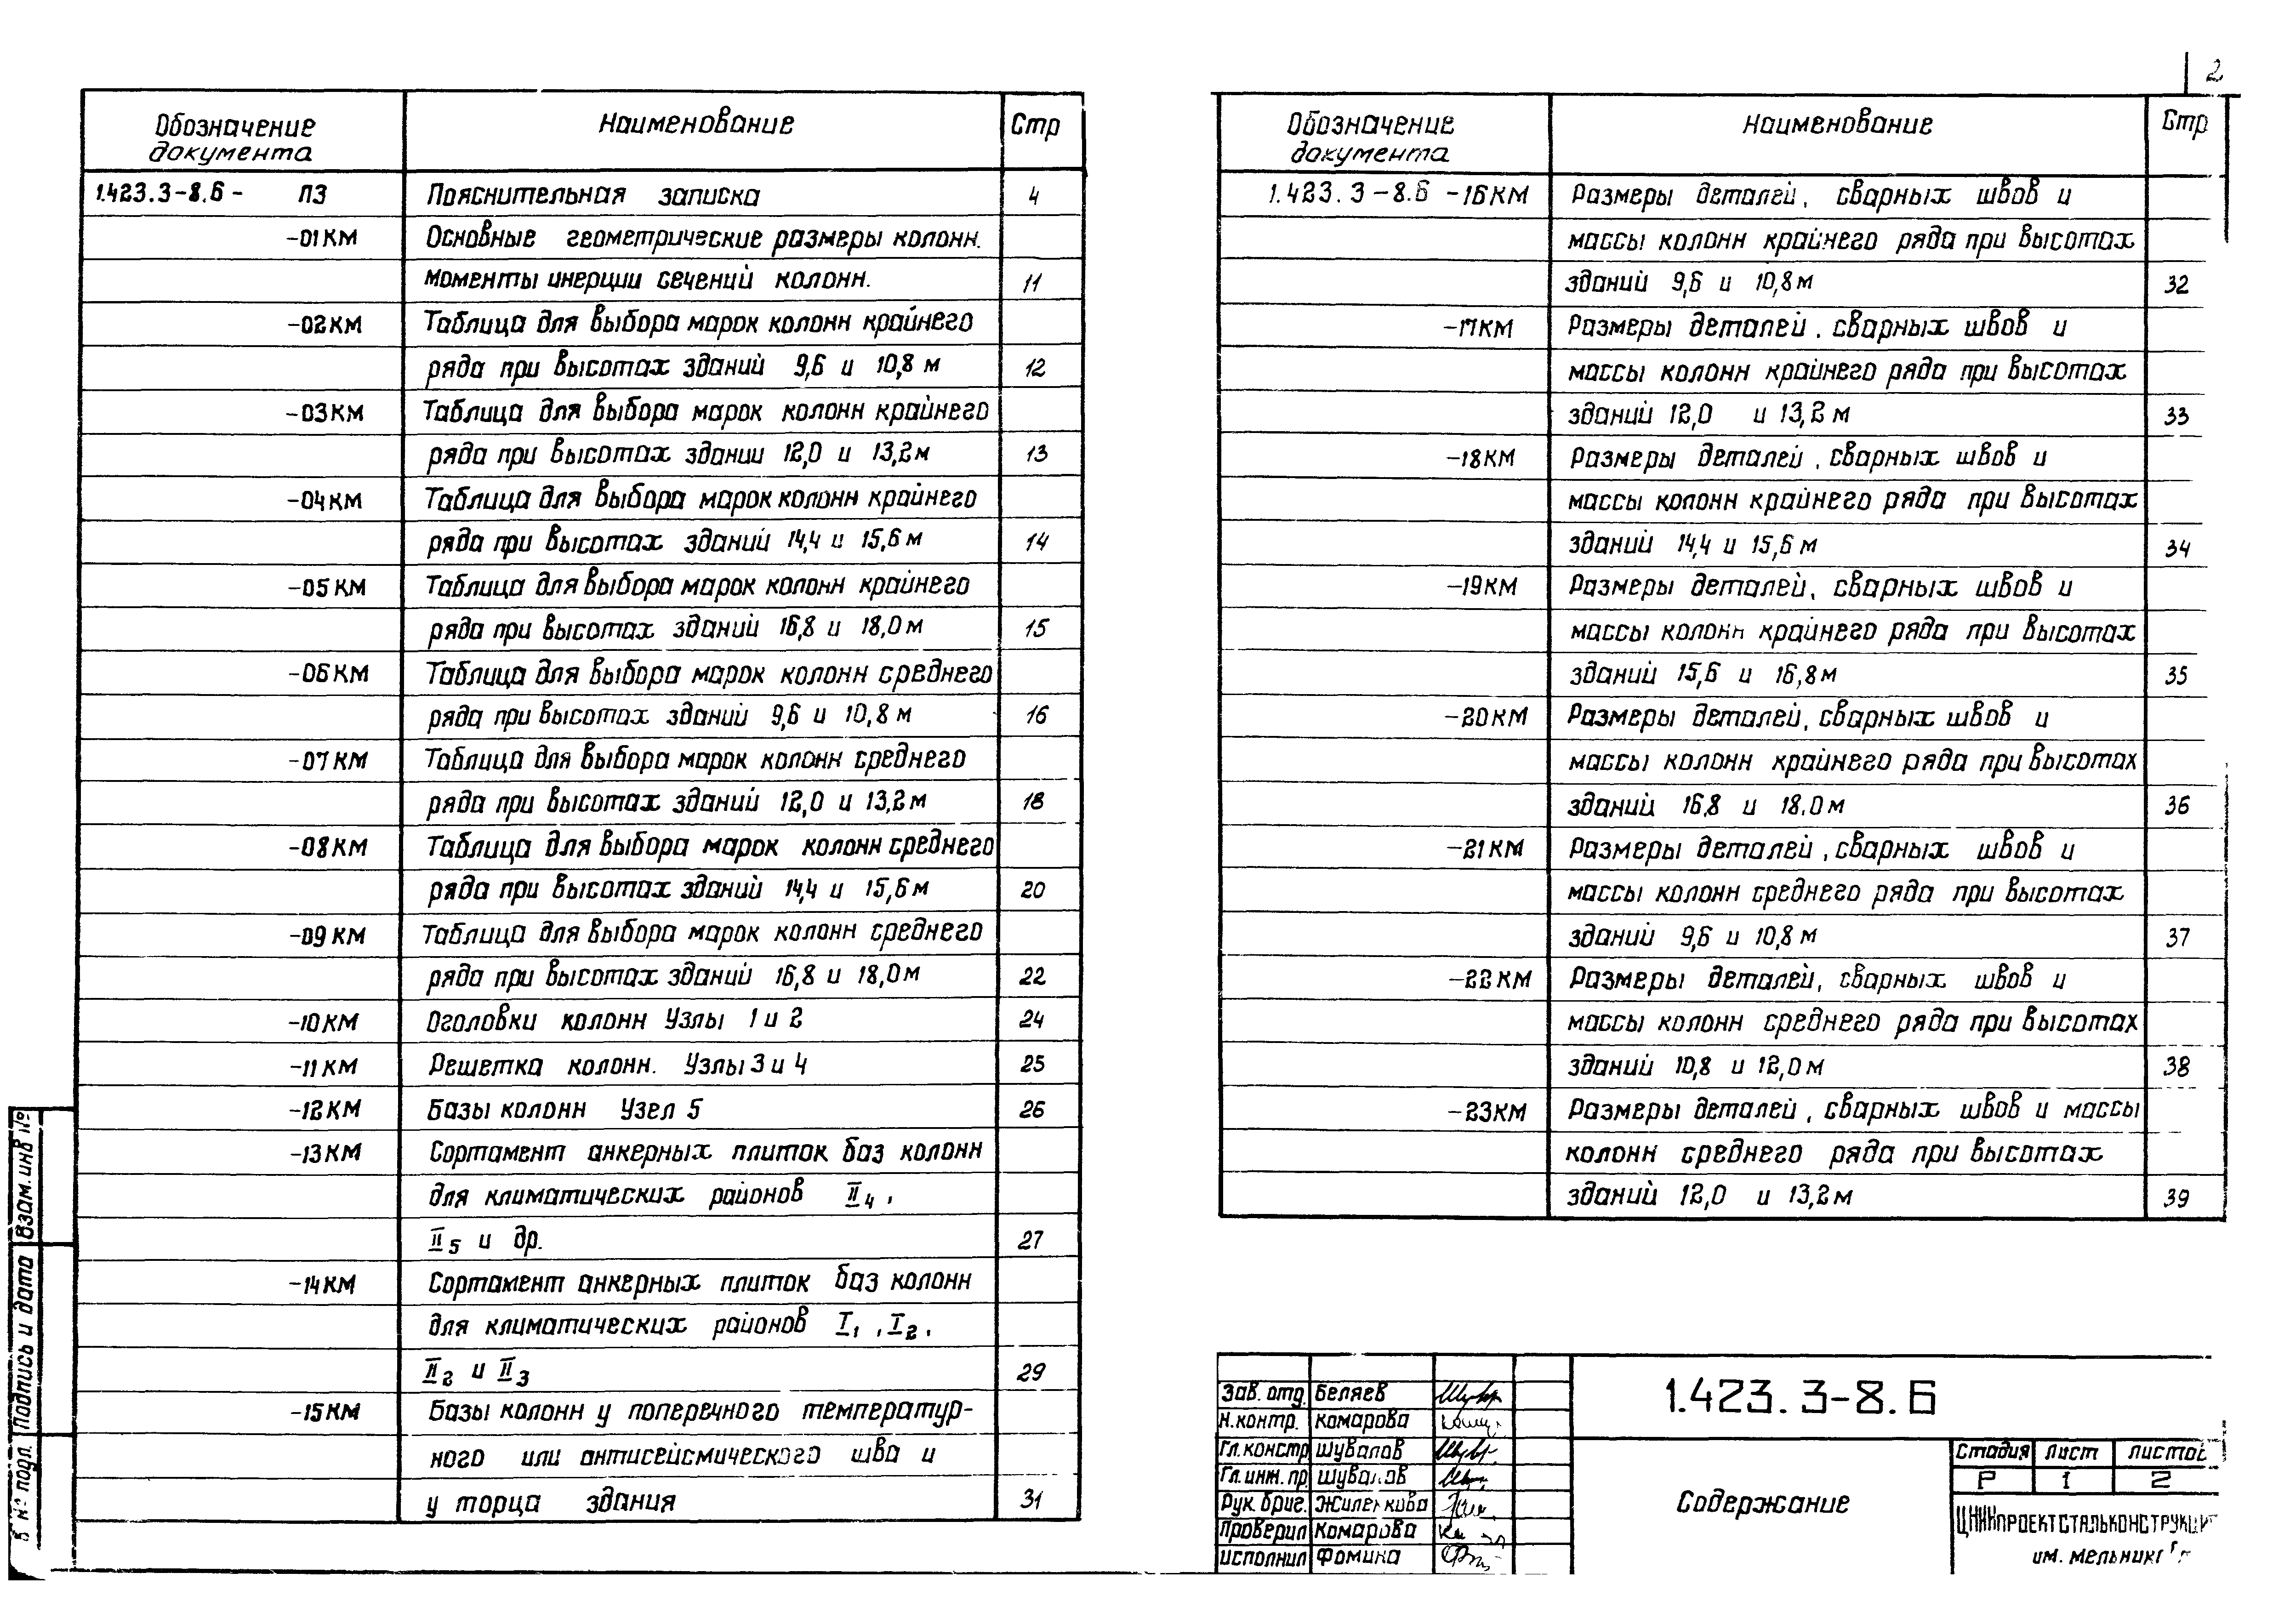 2
Обозначение документа Наименование Стр
1.423.3-8.6- ПЗ Пояснительная записка 4
-01КМ Основные геометрические размеры колонн.
Моменты инерции сечений колонн. 11
-02КМ Таблица для выбора марок колонн крайнего
ряда при высотах зданий 9,6 и 10,8 м 12
-03КМ Таблица для выбора марок колонн крайнего
ряда при высотах здании 12,0 и 13,2м 13
-04КМ Таблица для выбора марок колонн крайнего
ряда при высотах зданий 14,4 и 15,6м 14
-05КМ Таблица для выбора марок колонн крайнего
ряда при высотах зданий 16,8 и 18,0м 15
-06КМ Таблица для выбора марок колонн среднего
ряда при высотах зданий 9,6 и 10,8 м 16
-07КМ Таблица для выбора марок колонн среднего
ряда при высотах зданий 12,0 и 13,2м 18
-08КМ Таблица для выбора марок колонн среднего
ряда при высотах зданий 14,4 и 15,6м 20
-09КМ Таблица для выбора марок колонн среднего
ряда при высотах зданий 16,8 и 18,0м 22
-10КМ Оголовки колонн Узлы 1 и 2 24
-11КМ Решетка колонн. Узлы 3 и 4 25
-12КМ Базы колонн Узел 5 26
-13КМ Сортамент анкерных плиток баз колонн
для климатических районов II4,
II5 и др. 27
-14КМ Сортамент анкерных плиток баз колонн
для климатических районов I1, I2,
II2 и II3 29
-15КМ Базы колонн у поперечного температур-
ного или антисейсмического шва и
у торца здания 31
Обозначение документа Наименование Стр
1.423.3-8.6 -16КМ Размеры деталей, сварных швов и
массы колонн крайнего ряда при высотах
зданий 9,6 и 10,8м 32
-17КМ Размеры деталей, сварных швов и
массы колонн крайнего ряда при высотах
зданий 12,0 и 13,2м 33
-18КМ Размеры деталей, сварных швов и
массы колонн крайнего ряда при высотах
зданий 14,4 и 15,6м 34
-19КМ Размеры деталей, сварных швов и
массы колонн крайнего ряда при высотах
зданий 15,6 и 16,8м 35
-20КМ Размеры деталей, сварных швов и
массы колонн крайнего ряда при высотах
зданий 16,8 и 18.0м 36
-21КМ Размеры деталей, сварных швов и
массы колонн среднего ряда при высотах
зданий 9,6 и 10,8м 37
-22КМ Размеры деталей, сварных швов и
массы колонн среднего ряда при высотах
зданий 10,8 и 12,0м 38
-23КМ Размеры деталей, сварных швов и массы
колонн среднего ряда при высотах
зданий 12,0 и 13,2м 39
Взам.инв №
Подпись и дата
№ подл.
Зав. отд. Беляев
Н.контр. Комарова
Гл.констр Шувалов
Гл.инж.пр. Шувалов
Рук.бриг. Жиленкова
Проверил Комарова
Исполнил Фомина
1.423.3-8.6
Содержание
Стадия Лист Листов
Р 1 2
ЦНИИпроектстальконструкци
им. Мельник